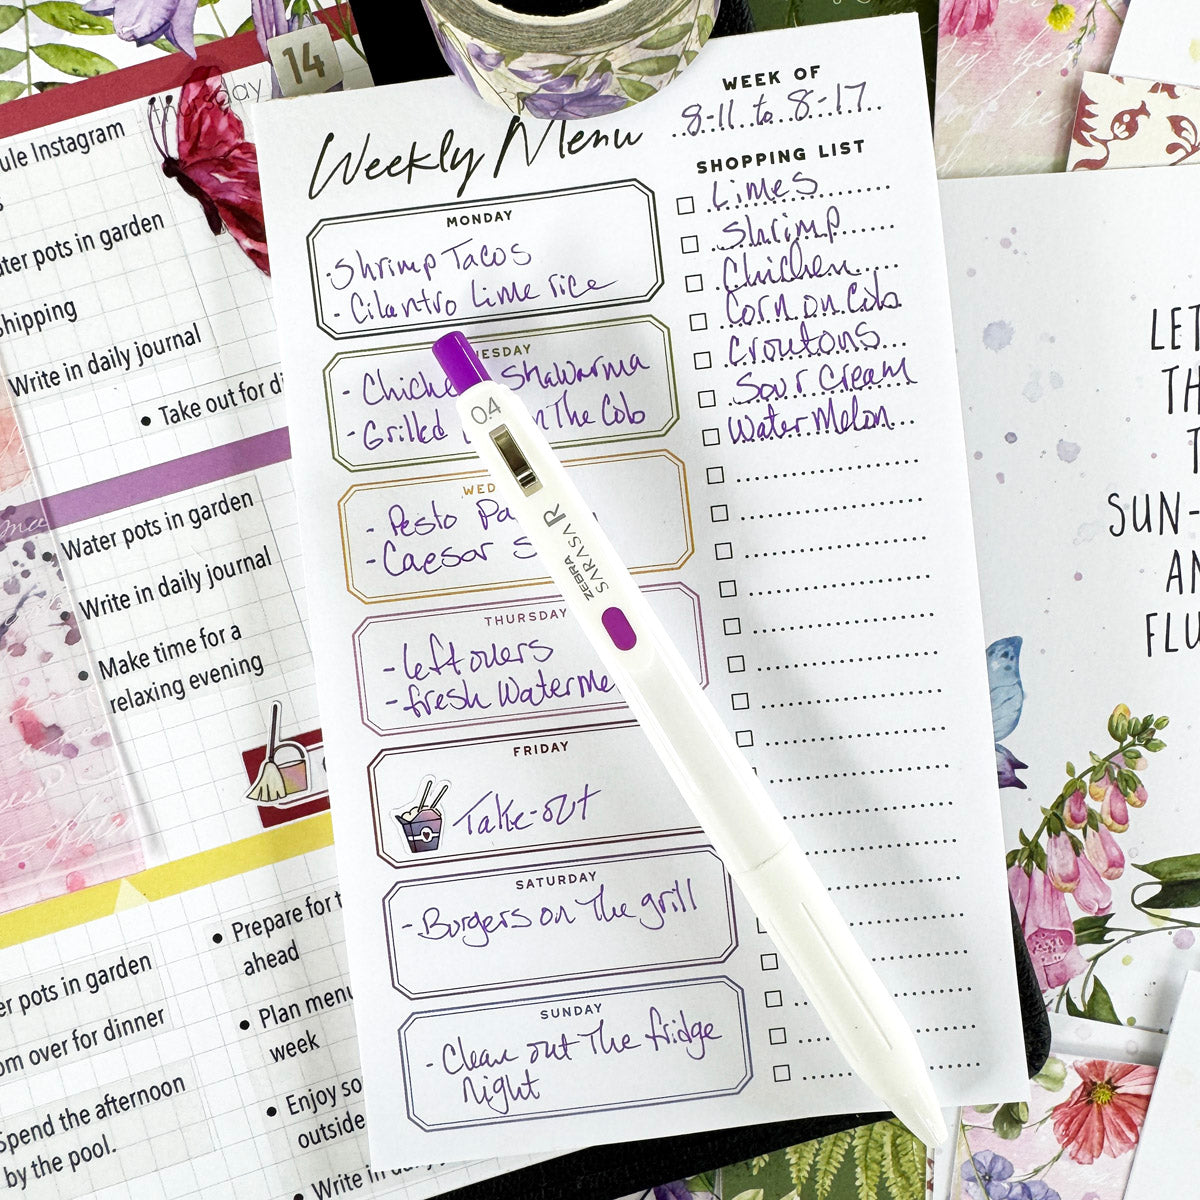 14
thursday
ule Instagram
s
ter pots in garden
hipping
Write in daily journal
• Take out for di
Water pots in garden
Write in daily journal
• Make time for a
relaxing evening
er pots in garden
om over for dinner
Spend the afternoon
by the pool.
• Prepare for t
ahead
• Plan menu
week
• Enjoy so
outside
• Write in daily
Weekly Menu
MONDAY
-Shrimp Tacos
- Cilantro Lime rice
ESDAY
- Chicke Shawarma
- Grilled n The Cob
WED
- Pesto Pa
- Caesar s
THURSDAY
- leftovers
- fresh Waterme
FRIDAY
Take-out
SATURDAY
- Burgers on The grill
SUNDAY
- Clean out The fridge
Night
WEEK OF
8-11 to 8-17
SHOPPING LIST
Limes
Shrimp
Chicken
Corn on Cob
Croutons
Sour Cream
Water Melon
0.4
ZEBRA
SARASA R
LET
TH
T
SUN-
AN
FLU